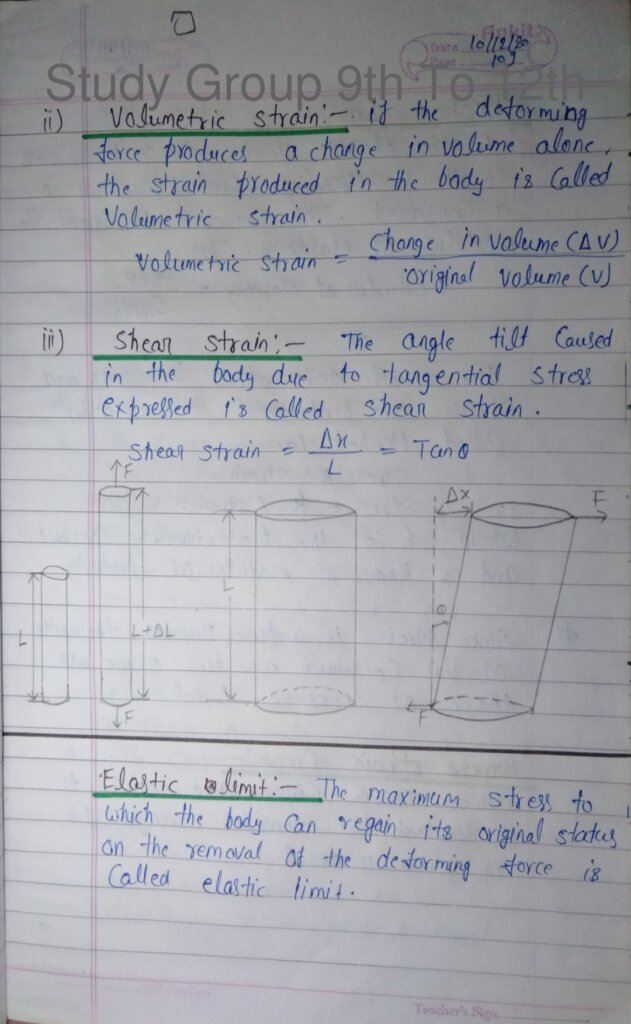 Date 10/12/20
Page 109
Study Group 9th To 12th
ii) Volumetric strain:- if the deforming
force produces a change in volume alone,
the strain produced in the body is Called
Volumetric strain.
Volumetric strain = Change in volume (ΔV) / original volume (V)
iii) Shear strain:- The angle tilt Caused
in the body due to tangential stress
expressed is Called shear strain.
Shear strain = Δx / L = Tanθ
F
Δx F
L L+ΔL L θ
F F
Elastic limit:- The maximum stress to
which the body Can regain its original status
on the removal of the deforming force is
Called elastic limit.
Teacher's Sign.